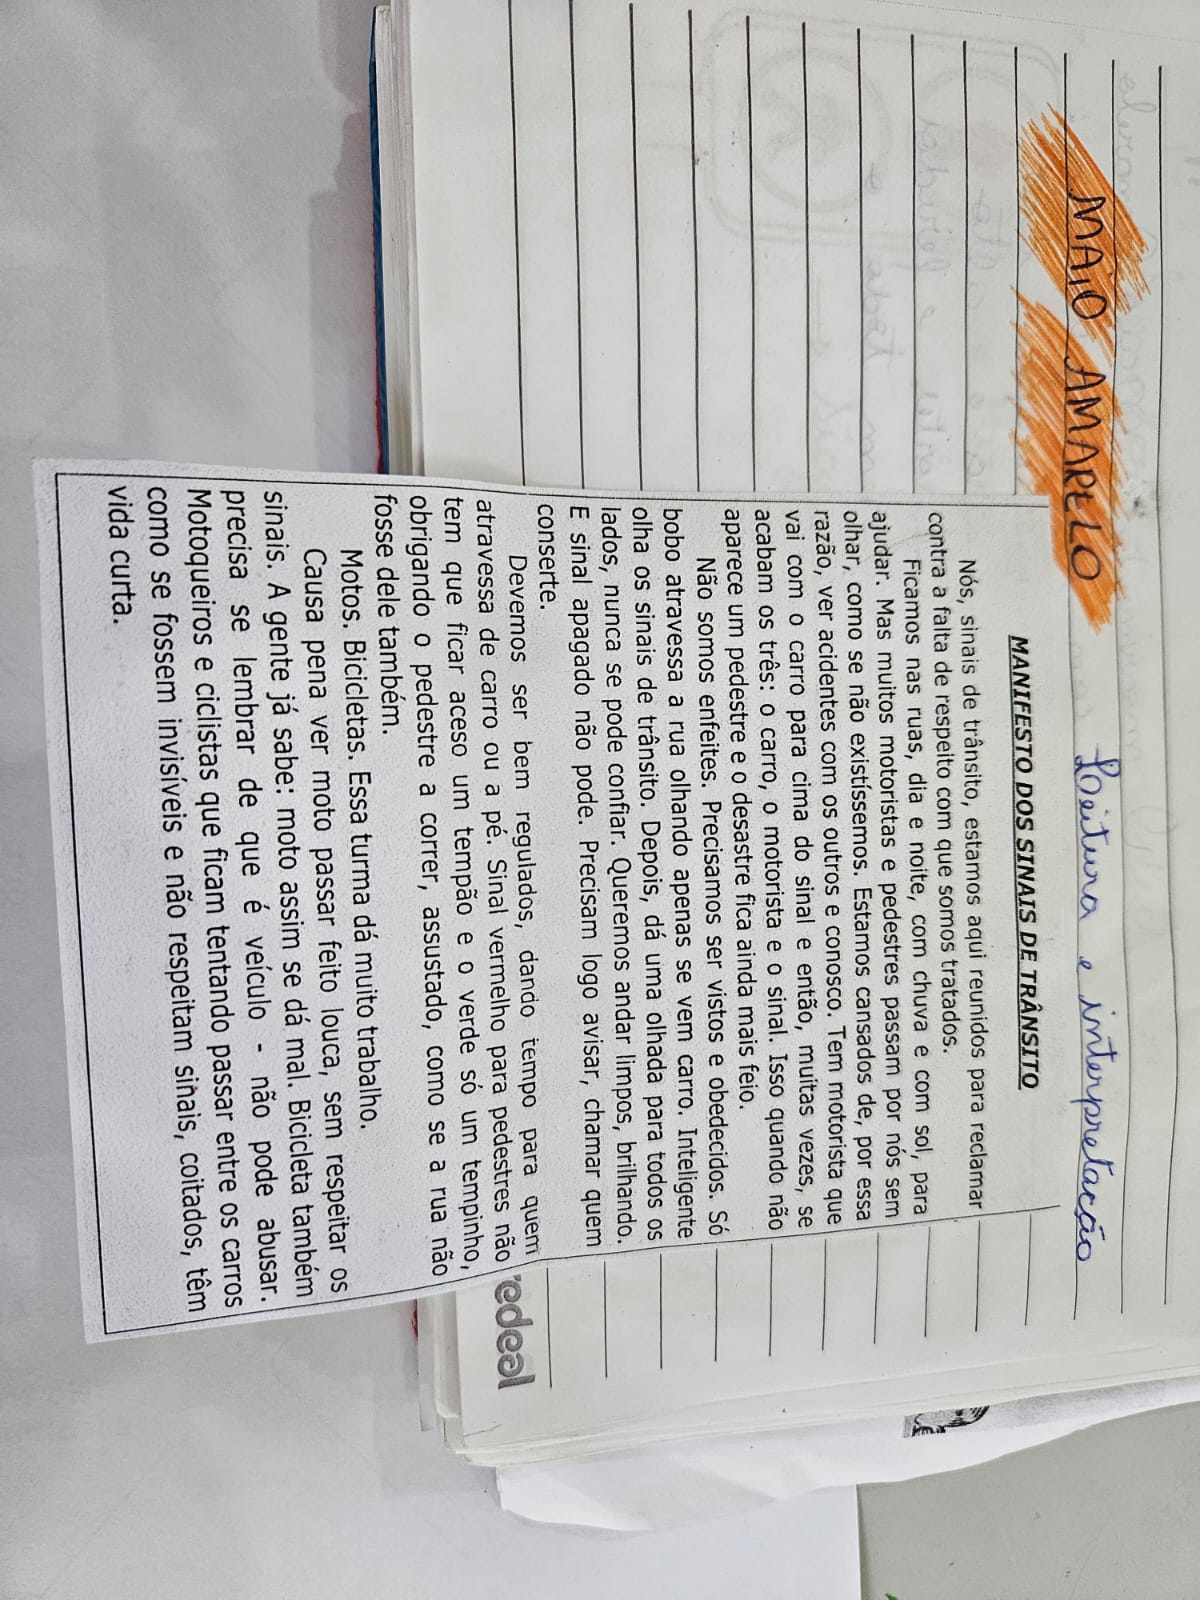 MAIO AMARELO Leitura e interpretação
MANIFESTO DOS SINAIS DE TRÂNSITO
Nós, sinais de trânsito, estamos aqui reunidos para reclamar
contra a falta de respeito com que somos tratados.
Ficamos nas ruas, dia e noite, com chuva e com sol, para
ajudar. Mas muitos motoristas e pedestres passam por nós sem
olhar, como se não existíssemos. Estamos cansados de, por essa
razão, ver acidentes com os outros e conosco. Tem motorista que
vai com o carro para cima do sinal e então, muitas vezes, se
acabam os três: o carro, o motorista e o sinal. Isso quando não
aparece um pedestre e o desastre fica ainda mais feio.
Não somos enfeites. Precisamos ser vistos e obedecidos. Só
bobo atravessa a rua olhando apenas se vem carro. Inteligente
olha os sinais de trânsito. Depois, dá uma olhada para todos os
lados, nunca se pode confiar. Queremos andar limpos, brilhando.
E sinal apagado não pode. Precisam logo avisar, chamar quem
conserte.
Devemos ser bem regulados, dando tempo para quem
atravessa de carro ou a pé. Sinal vermelho para pedestres não
tem que ficar aceso um tempão e o verde só um tempinho,
obrigando o pedestre a correr, assustado, como se a rua não
fosse dele também.
Motos. Bicicletas. Essa turma dá muito trabalho.
Causa pena ver moto passar feito louca, sem respeitar os
sinais. A gente já sabe: moto assim se dá mal. Bicicleta também
precisa se lembrar de que é veículo - não pode abusar.
Motoqueiros e ciclistas que ficam tentando passar entre os carros
como se fossem invisíveis e não respeitam sinais, coitados, têm
vida curta.
redeal